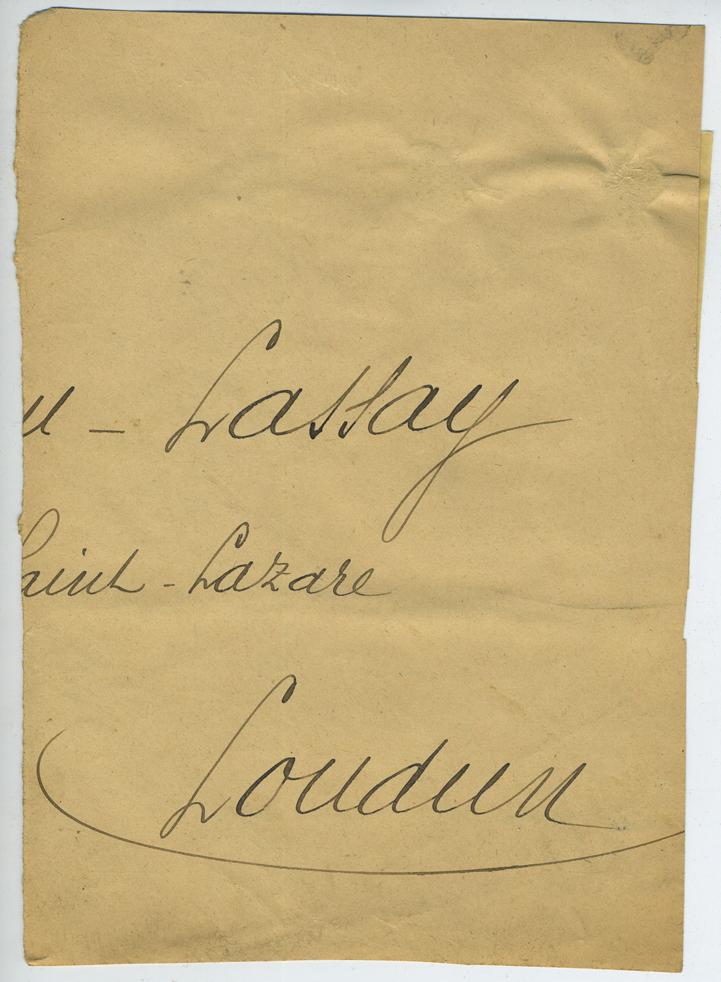 u - Lassay
Saint-Lazare
Loudun